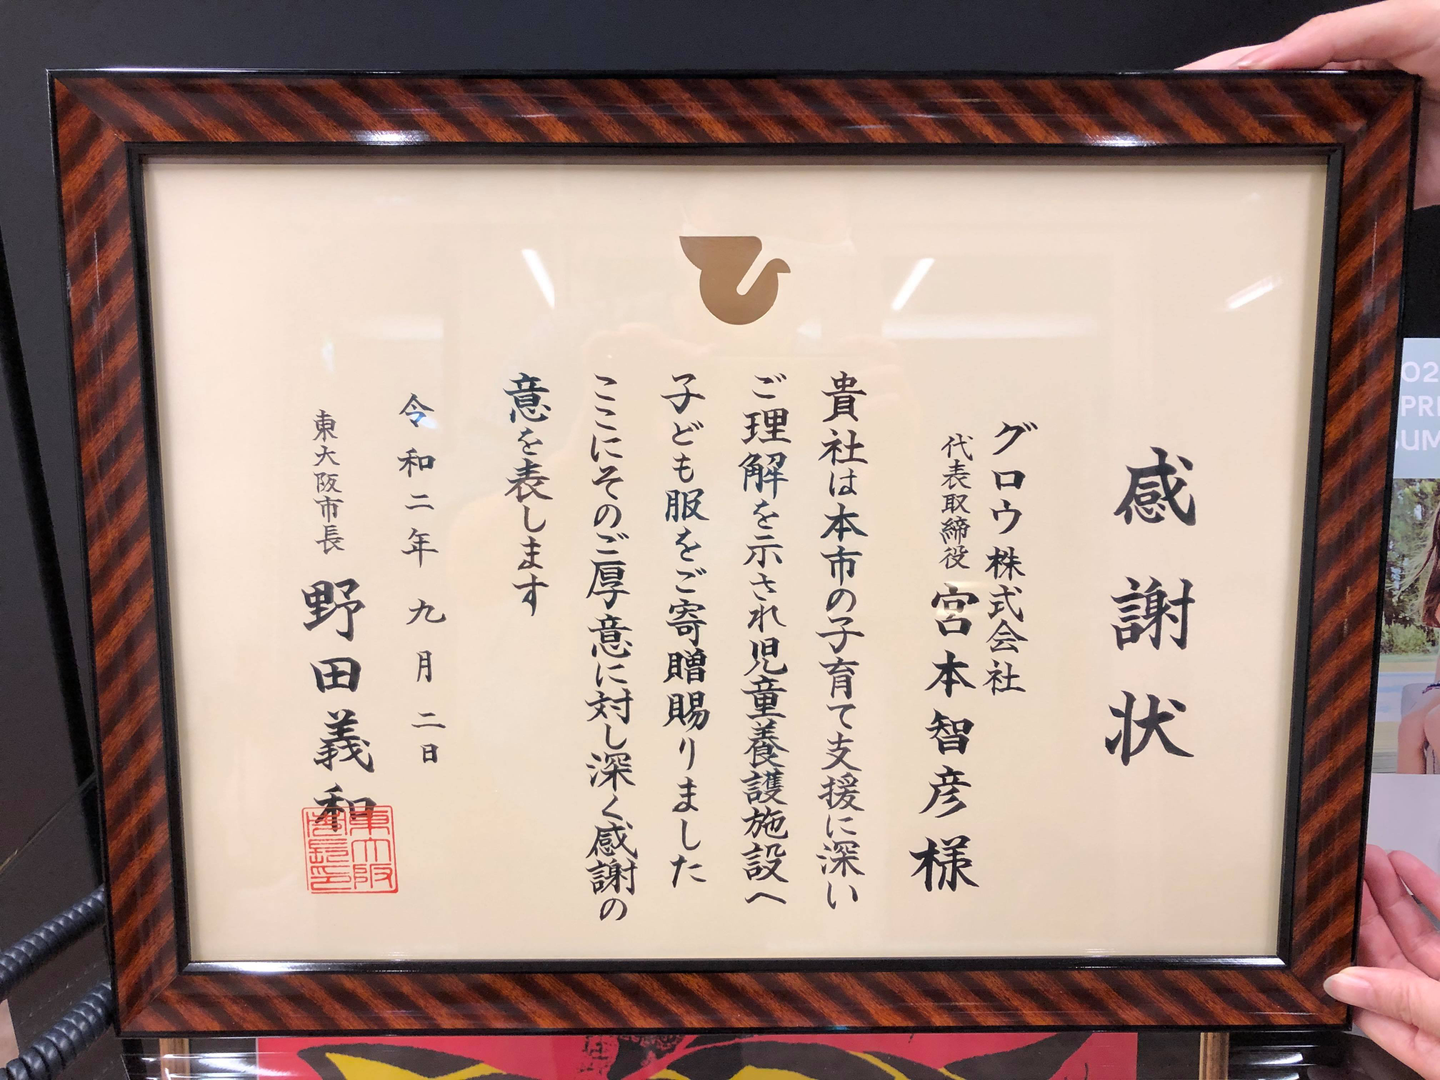 感謝状
グロウ株式会社
代表取締役 宮本智彦様
貴社は本市の子育て支援に深い
ご理解を示され児童養護施設へ
子ども服をご寄贈賜りました
ここにそのご厚意に対し深く感謝の
意を表します
令和二年九月二日
東大阪市長 野田義和
東大阪
市長印